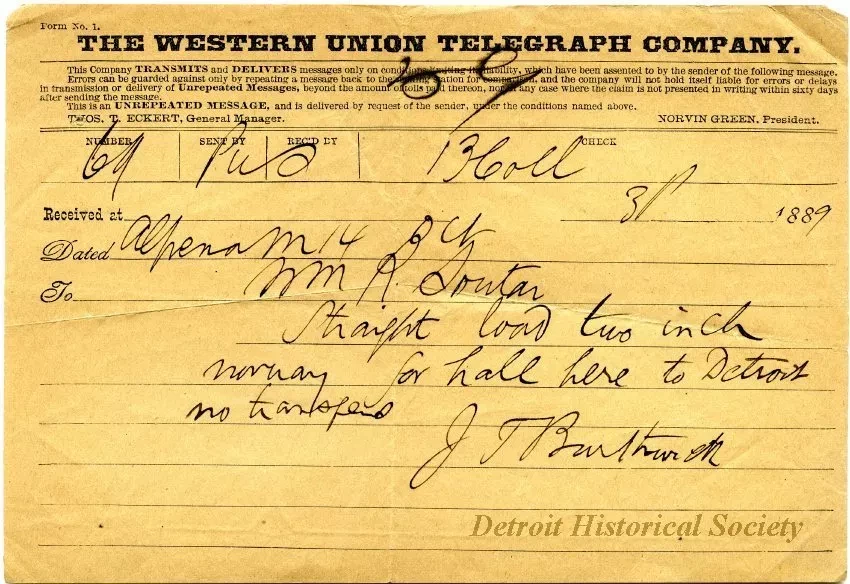 Form No. 1.
THE WESTERN UNION TELEGRAPH COMPANY.
This Company TRANSMITS and DELIVERS messages only on conditions limiting its liability, which have been assented to by the sender of the following message.
Errors can be guarded against only by repeating a message back to the sending station for comparison, and the company will not hold itself liable for errors or delays
in transmission or delivery of Unrepeated Messages, beyond the amount of tolls paid thereon, nor in any case where the claim is not presented in writing within sixty days
after sending the message.
This is an UNREPEATED MESSAGE, and is delivered by request of the sender, under the conditions named above.
THOS. T. ECKERT, General Manager. NORVIN GREEN, President.
NUMBER SENT BY REC'D BY CHECK
69 13 Coll
Received at 3P 1889
Dated Alpena M 14
To Wm R. Soutar
Straight load two inch
norway for hall here to Detroit
no transfers
J T Burthwick
Detroit Historical Society